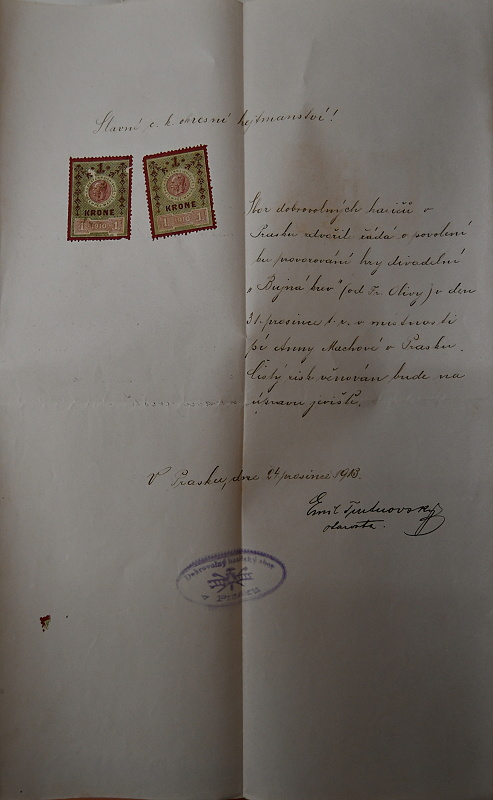 Slavné c. k. okresní hejtmanství!
1
KRONE
1 1910 1
1
KRONE
1 1910 1
Sbor dobrovolných hasičů v
Prasku uctivě žádá o povolení
ku provozování hry divadelní
„Bujná krev" (od Fr. Olivy) v den
31. prosince t. r. v místnosti
pí Anny Machové v Prasku.
Čistý zisk věnován bude na
úpravu jeviště.
V Prasku, dne 24 prosince 1913.
Emil Trutnovský
starosta.
Dobrovolný hasičský sbor
v Prasku